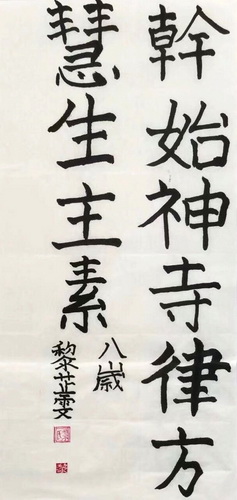 幹始神寺律方
慧生主素
八歲
黎芷雯